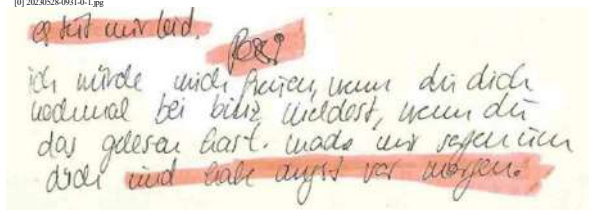 [0] 20230528-0931-0-1.jpg
es tut mir leid.
ich würde mich freuen, wenn du dich
nochmal bei meldest, wenn du
das gelesen hast. mache mir sorgen um
dich und habe angst vor morgen.